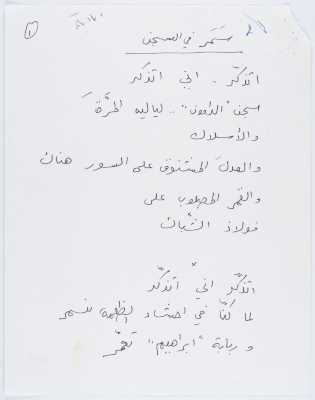 ١
سَمَر في السجن
اتذكّر .. اني اتذكر
سجن "الدامون" .. لياليه المرَّة
والأسلاك
والعدلَ المشنوق على السور هناك
والقمر المصلوب على
فولاذ الشبّاك
اتذكّر انيّ اتذكّر
لما كنّا في احشاء الظلمة نسمر
و ربابة "ابراهيم"